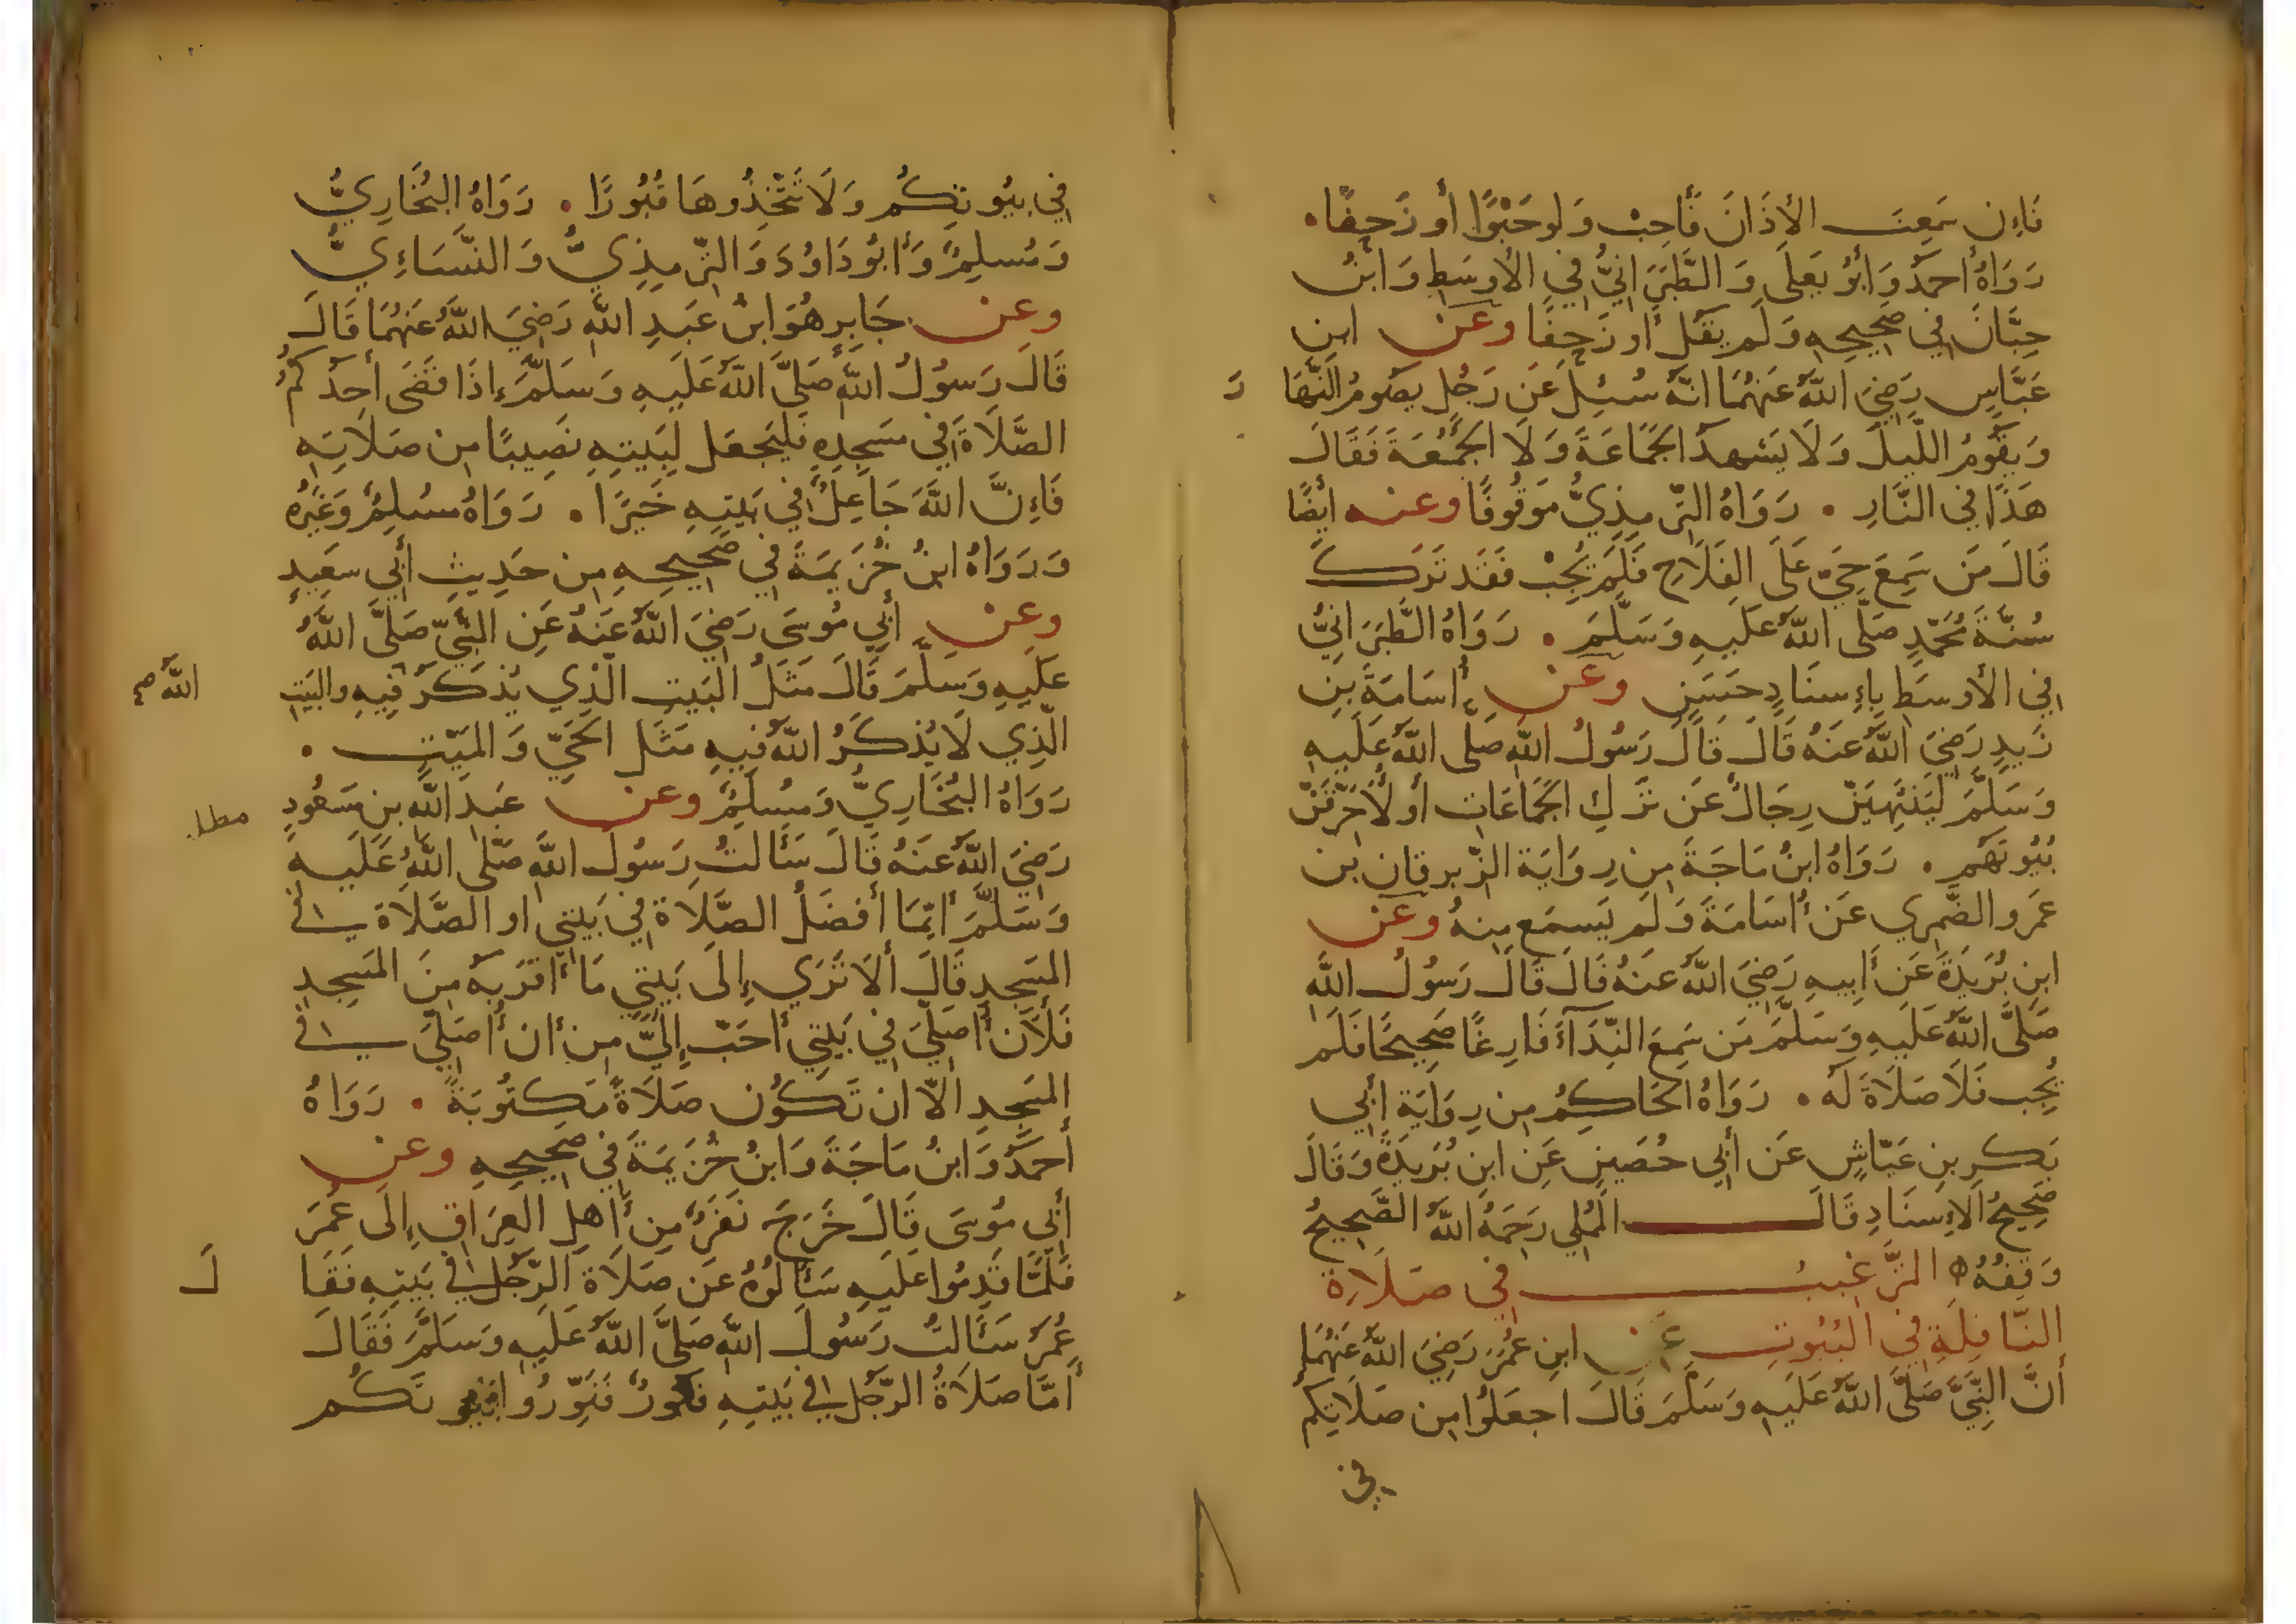 فَإِن سَمِعتَ الأَذَانَ فَأَجِبْ وَلَو حَبْوًا أَو زَحفًا.
رَوَاهُ أَحمَدُ وَأَبُو يَعلَى وَالطَّبَرَانِيُّ فِي الأَوسَطِ وَابنُ
حِبَّانَ فِي صَحِيحِهِ وَلَم يَقُل أَو زَحفًا وعَن ابنِ
عَبَّاسٍ رَضِيَ اللَّهُ عَنهُمَا انَّهُ سُئِلَ عَن رَجُلٍ يَصُومُ النَّهَا رَ
وَيَقُومُ اللَّيلَ وَلَا يَشهَدُ الجَمَاعَةَ وَلَا الجُمُعَةَ فَقَالَ
هَذَا فِي النَّارِ . رَوَاهُ التِّرمِذِيُّ مَوقُوفًا وعنه أَيضًا
قَالَ مَن سَمِعَ حَيَّ عَلَى الفَلَاحِ فَلَم يُجِبْ فَقَد تَرَكَ
سُنَّةَ مُحَمَّدٍ صَلَّى اللَّهُ عَلَيهِ وَسَلَّمَ . رَوَاهُ الطَّبَرَانِيُّ
فِي الأَوسَطِ بِإِسنَادٍ حَسَنٍ وعَن أُسَامَةَ بنِ
زَيدٍ رَضِيَ اللَّهُ عَنهُ قَالَ قَالَ رَسُولُ اللَّهِ صَلَّى اللَّهُ عَلَيهِ
وَسَلَّمَ لَيَنتَهِيَنَّ رِجَالٌ عَن تَركِ الجَمَاعَاتِ أَو لَأُحَرِّقَنَّ
بُيُوتَهُم . رَوَاهُ ابنُ مَاجَةَ مِن رِوَايَة الزِّبرقان بن
عَمرو الضَّمرِي عَن أُسَامَةَ وَلَم يَسمَع مِنهُ وعَن
ابنِ بُرَيدَةَ عَن أَبِيهِ رَضِيَ اللَّهُ عَنهُ قَالَ قَالَ رَسُولُ اللَّهِ
صَلَّى اللَّهُ عَلَيهِ وَسَلَّمَ مَن سَمِعَ النِّدَآءَ فَارِغًا صَحِيحًا فَلَم
يُجِب فَلَا صَلَاةَ لَهُ . رَوَاهُ الحَاكِمُ مِن رِوَايَة أَبِي
بَكرِ بنِ عَيَّاشٍ عَن أَبِي حُصَينٍ عَنِ ابنِ بُرَيدَةَ وَقَالَ
صَحِيحُ الاسنَادِ قَالَ المُملِي رَحِمَهُ اللَّهُ الصَّحِيحُ
وَقفُهُ التَّرغِيبُ فِي صَلَاةِ
النَّافِلَةِ فِي البُيُوتِ عَن ابنِ عُمَرَ رَضِيَ اللَّهُ عَنهُمَا
أَنَّ النَّبِيَّ صَلَّى اللَّهُ عَلَيهِ وَسَلَّمَ قَالَ اجعَلُوا مِن صَلَاتِكُم
في
فِي بُيُوتِكُم وَلَا تَتَّخِذُوهَا قُبُورًا . رَوَاهُ البُخَارِيُّ
وَمُسلِمٌ وَأَبُو دَاوُدَ وَالتِّرمِذِيُّ وَالنَّسَاءِيُّ
وعَن جَابِرٍ هُوَ ابنُ عَبدِ اللَّهِ رَضِيَ اللَّهُ عَنهُمَا قَالَ
قَالَ رَسُولُ اللَّهِ صَلَّى اللَّهُ عَلَيهِ وَسَلَّمَ إِذَا قَضَى أَحَدُكُمُ
الصَّلَاةَ فِي مَسجِدِهِ فَليَجعَل لِبَيتِهِ نَصِيبًا مِن صَلَاتِهِ
فَإِنَّ اللَّهَ جَاعِلٌ فِي بَيتِهِ خَيرًا . رَوَاهُ مُسلِمٌ وَغَيرُهُ
وَرَوَاهُ ابنُ خُزَيمَةَ فِي صَحِيحِهِ مِن حَدِيثِ أَبِي سَعِيدٍ
وعَن أَبِي مُوسَى رَضِيَ اللَّهُ عَنهُ عَنِ النَّبِيِّ صَلَّى اللَّهُ
عَلَيهِ وَسَلَّمَ قَالَ مَثَلُ البَيتِ الَّذِي يُذكَرُ فِيهِ والبَيتِ
اللَّهُ صح
الَّذِي لَا يُذكَرُ اللَّهُ فِيهِ مَثَلُ الحَيِّ وَالمَيِّتِ .
رَوَاهُ البُخَارِيُّ وَمُسلِمٌ وعَن عَبدِ اللَّهِ بنِ مَسعُودٍ
مطلـ
رَضِيَ اللَّهُ عَنهُ قَالَ سَأَلتُ رَسُولَ اللَّهِ صَلَّى اللَّهُ عَلَيهِ
وَسَلَّمَ أَيُّمَا أَفضَلُ الصَّلَاةُ فِي بَيتِي او الصَّلَاةُ في
المَسجِدِ قَالَ أَلَا تَرَي إِلَى بَيتِي مَا أَقرَبَهُ مِنَ المَسجِدِ
فَلَأَن أُصَلِّيَ فِي بَيتِي أَحَبُّ إِلَيَّ مِن أَن أُصَلِّيَ في
المَسجِدِ الَّا ان تَكُون صَلَاةً مَكتُوبَةً . رَوَاهُ
أَحمَدُ وَابنُ مَاجَةَ وَابنُ خُزَيمَةَ فِي صَحِيحِهِ وعَن
أَبِي مُوسَى قَالَ خَرَجَ نَفَرٌ مِن أَهلِ العِرَاقِ إِلَى عُمَرَ
فَلَمَّا قَدِمُوا عَلَيهِ سَأَلُوهُ عَن صَلَاةِ الرَّجُلِ فِي بَيتِهِ فَقَا لَ
عُمَرُ سَأَلتُ رَسُولَ اللَّهِ صَلَّى اللَّهُ عَلَيهِ وَسَلَّمَ فَقَالَ
أَمَّا صَلَاةُ الرَّجُلِ فِي بَيتِهِ فَنُورٌ فَنَوِّرُوا بُيُوتَكُم